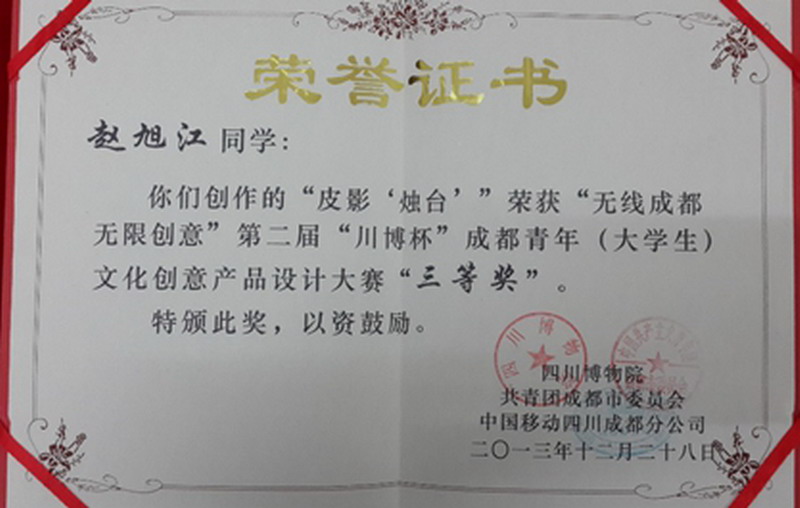 荣誉证书
赵旭江同学：
你们创作的“皮影‘烛台’”荣获“无线成都
无限创意”第二届“川博杯”成都青年（大学生）
文化创意产品设计大赛“三等奖”。
特颁此奖，以资鼓励。
四川博物院
四川博物院
共青团成都市委员会
中国移动四川成都分公司
二〇一三年十二月二十八日